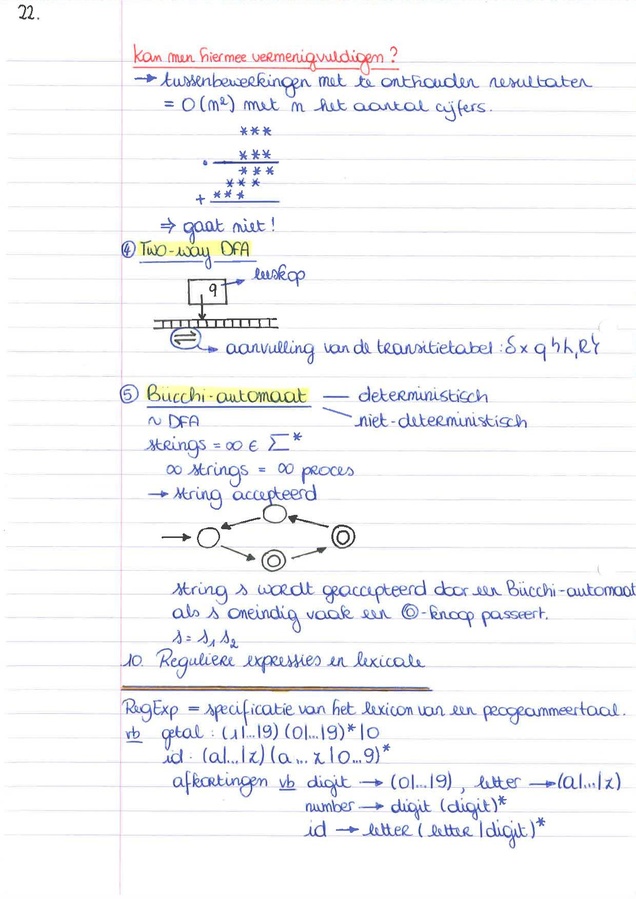 22.
Kan men hiermee vermenigvuldigen?
→ tussenbewerkingen met te onthouden resultaten
= O(n²) met n het aantal cijfers.
***
• ***
***
***
+ ***
⇒ gaat niet!
④ Two-way DFA
q → leeskop
⇌ → aanvulling van de transitietabel : δ x q {L,R}
⑤ Bücchi-automaat — deterministisch
~ DFA niet-deterministisch
strings = ∞ ∈ Σ*
∞ strings = ∞ proces
→ string accepteerd
string s wordt geaccepteerd door een Bücchi-automaat
als s oneindig vaak een ◎-knoop passeert.
s = s₁ s₂
10. Reguliere expressies en lexicale
RegExp = specificatie van het lexicon van een programmeertaal.
vb getal : (1|...|9) (0|...|9)*|0
id : (a|...|z) (a...z|0...9)*
afkortingen vb digit → (0|...|9) , letter → (a|...|z)
number → digit (digit)*
id → letter (letter|digit)*